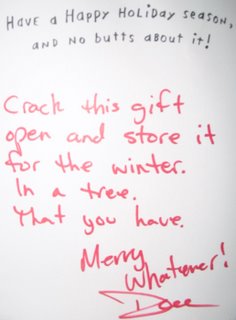 Have a Happy Holiday season,
and no butts about it!
Crack this gift
open and store it
for the winter.
In a tree.
That you have.
Merry
Whatever!